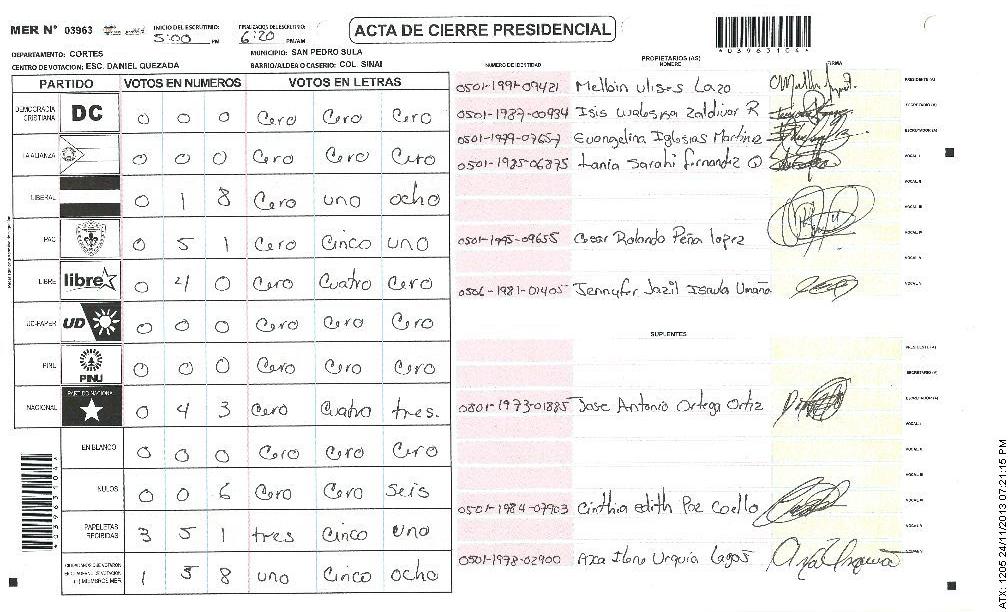 MER N° 03963 INICIO DEL ESCRUTINIO: 5:00 PM FINALIZACION DEL ESCRUTINIO: 6:20 PM/AM
ACTA DE CIERRE PRESIDENCIAL
4039631044
DEPARTAMENTO: CORTES MUNICIPIO: SAN PEDRO SULA
CENTRO DE VOTACION: ESC. DANIEL QUEZADA BARRIO/ALDEA O CASERIO: COL. SINAI
PARTIDO VOTOS EN NUMEROS VOTOS EN LETRAS
DEMOCRACIA CRISTIANA DC 0 0 0 Cero Cero Cero
LA ALIANZA 0 0 0 Cero Cero Cero
LIBERAL 0 1 8 Cero uno ocho
PAC 0 5 1 Cero Cinco uno
LIBRE libre 0 4 0 Cero Cuatro Cero
UD-FAPER UD 0 0 0 Cero Cero Cero
PINU PINU 0 0 0 Cero Cero Cero
NACIONAL PARTIDO NACIONAL 0 4 3 Cero Cuatro tres.
EN BLANCO 0 0 0 Cero Cero Cero
NULOS 0 0 6 Cero Cero Seis
PAPELETAS RECIBIDAS 3 5 1 tres Cinco uno
1 5 8 uno Cinco ocho
PROPIETARIOS (AS)
NUMERO DE IDENTIDAD NOMBRE FIRMA
0501-1991-09421 Melbin ulises Lazo PRESIDENTE (A)
0501-1987-00934 Isis Waleska Zaldivar R SECRETARIO (A)
0501-1999-07657 Evangelina Iglesias Martinez ESCRUTADOR (A)
0501-1985-06875 tania Sarahi fernandez O VOCAL I
VOCAL II
VOCAL III
0501-1995-09655 Cesar Rolando Peña lopez VOCAL IV
VOCAL V
0506-1981-01405 Jennyfer Jazil Isaula Umaña
SUPLENTES
PRESIDENTE (A)
SECRETARIO (A)
0801-1973-01885 Jose Antonio Ortega Ortiz ESCRUTADOR (A)
VOCAL I
VOCAL II
VOCAL III
0501-1984-07903 Cinthia edith Paz Coello
VOCAL V
0501-1978-02900 Aza Ilene Urquia Lagos
ATX: 1205 24/11/2013 07:21:15 PM